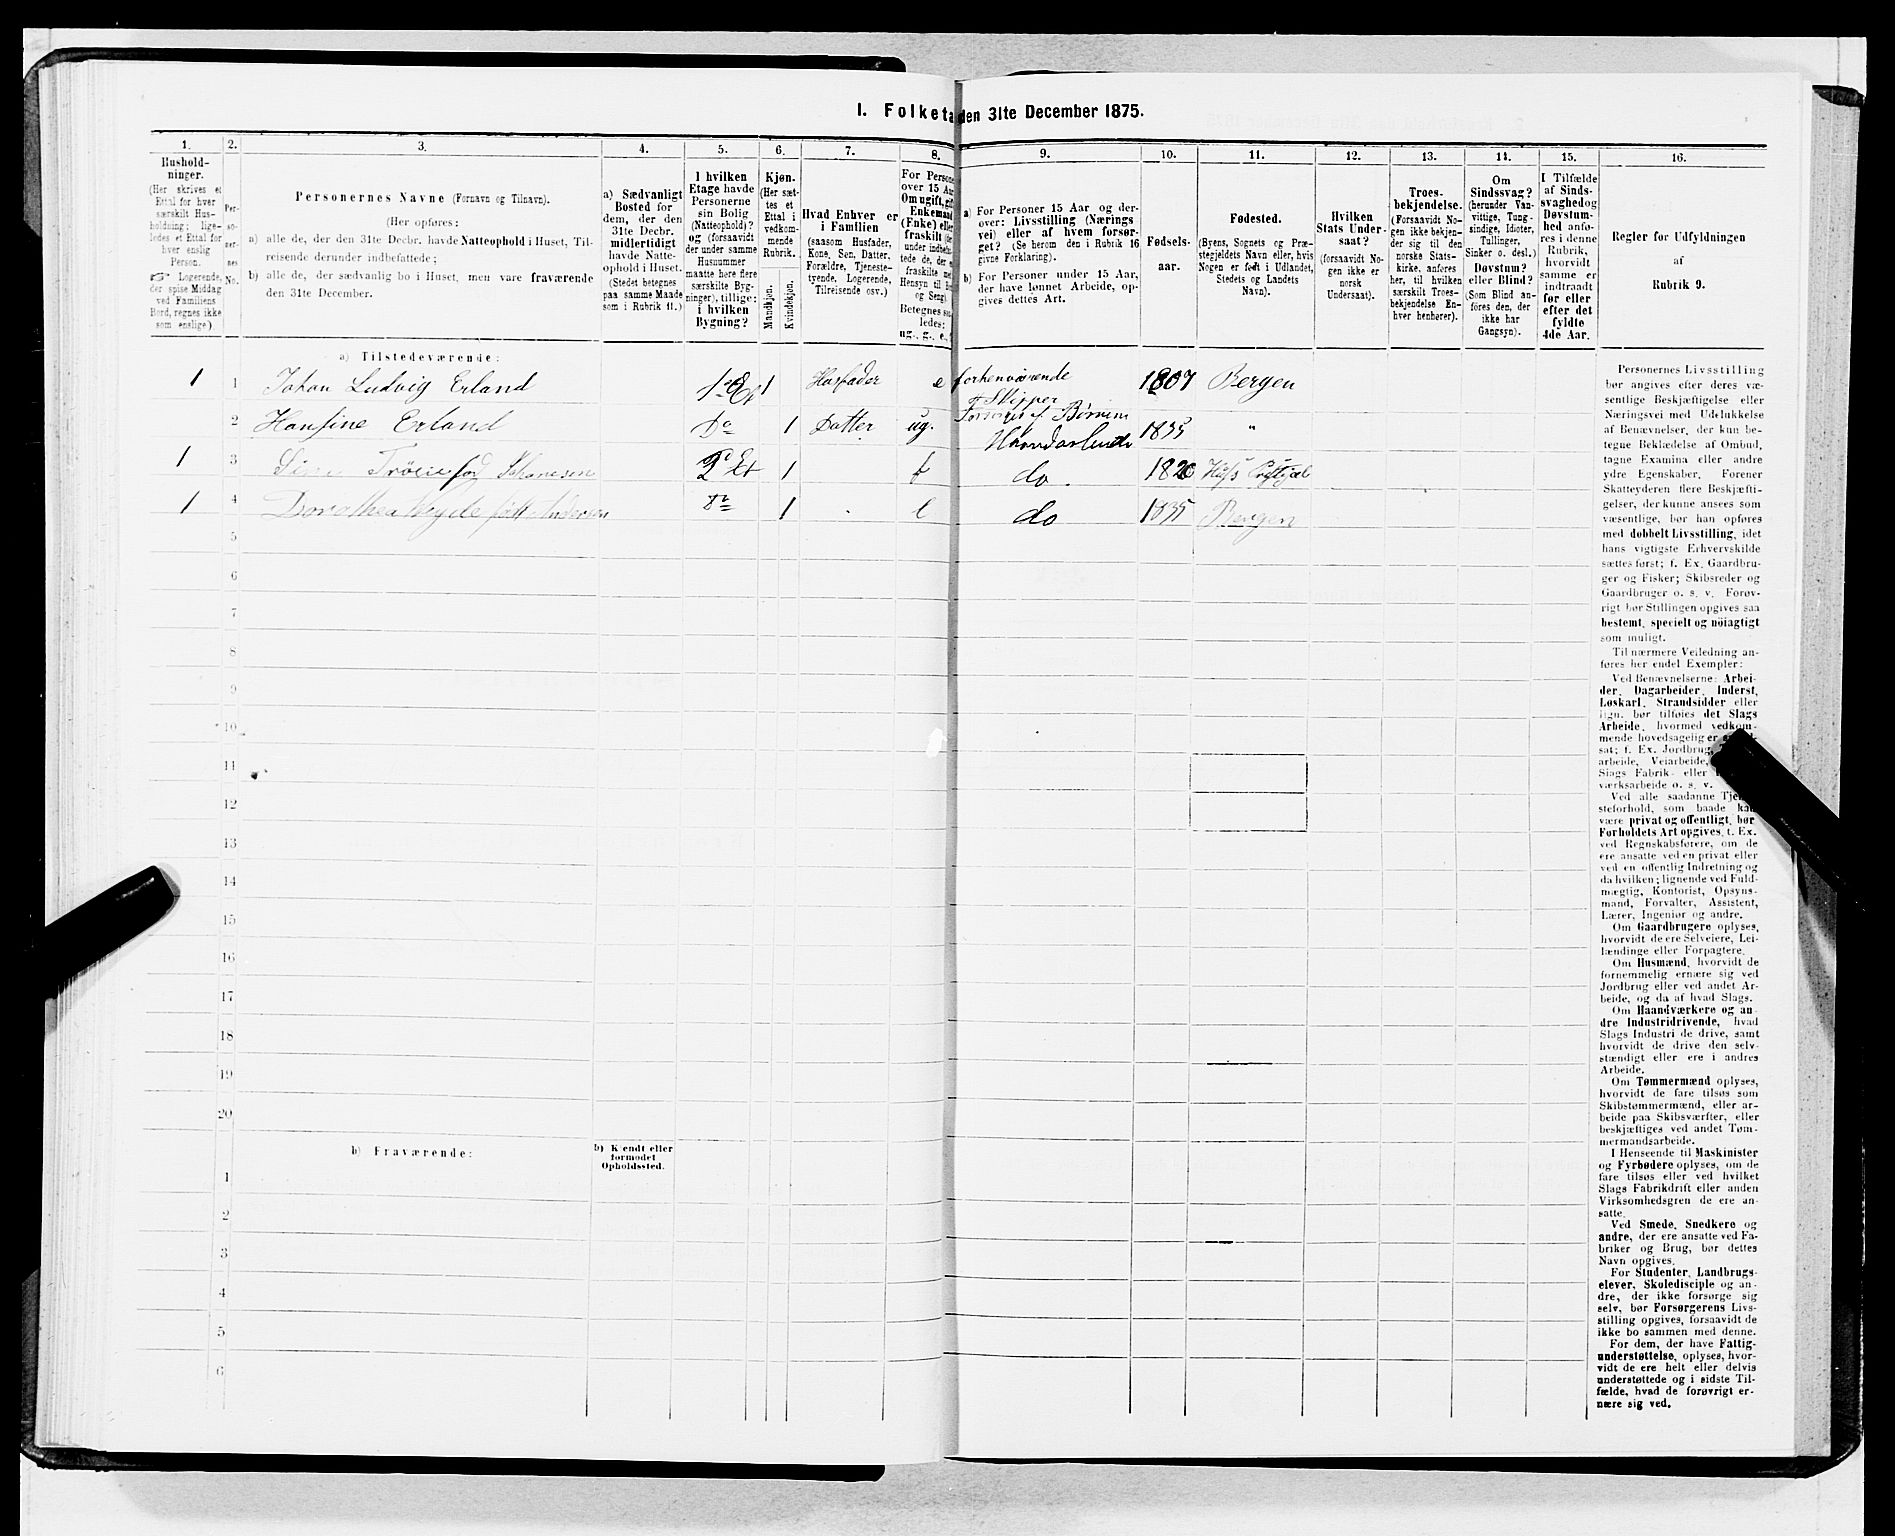 I. Folketæ
den 31te December 1875.
1.
Hushold-
ninger.
(Her skrives et
Ettal for hver
særskilt Hus-
holdning; lige-
ledes et Ettal for
hver enslig
Person.
☞ Logerende,
der spise Middag
ved Familiens
Bord, regnes ikke
som enslige.)
2.
Per-
so-
ner-
nes
No.
3.
Personernes Navne (Fornavn og Tilnavn).
(Her opføres:
a) alle de, der den 31te Decbr. havde Natteophold i Huset, Til-
reisende derunder indbefattede;
b) alle de, der sædvanlig bo i Huset, men vare fraværende
den 31te December.
4.
a) Sædvanligt
Bosted for
dem, der den
31te Decbr.
midlertidigt
havde Natte-
ophold i Huset.
(Stedet betegnes
paa samme Maade
som i Rubrik 11.)
5.
I hvilken
Etage havde
Personerne
sin Bolig
(Natteophold)?
og (forsaavidt
der under samme
Husnummer
maatte høre flere
særskilte Byg-
ninger), tillige:
i hvilken
Bygning?
6.
Kjøn.
(Her sæt-
tes et
Ettal i
vedkom-
mende
Rubrik.
Mandkjøn.
Kvindekjøn.
7.
Hvad Enhver er
i Familien
(saasom Husfader,
Kone, Søn, Datter,
Forældre, Tjeneste-
tyende, Logerende,
Tilreisende osv.)
8.
For Persone
over 15 Aar
Om ugift, gift
Enkemand
(Enke) eller
fraskilt
under indbefat-
tede de, der e
fraskilte me
Hensyn til Bo
og Seng).
Betegnes saa
ledes:
ug., g., e.,
9.
a) For Personer 15 Aar og der-
over: Livsstilling (Nærings
vei) eller af hvem forsør-
get? (Se herom den i Rubrik 16
givne Forklaring).
b) For Personer under 15 Aar,
der have lønnet Arbeide, op-
gives dettes Art.
10.
Fødsels-
aar.
11.
Fødested.
(Byens, Sognets og Præ-
stegjeldets Navn eller, hvis
Nogen er født i Udlandet,
Stedets og Landets
Navn).
12.
Hvilken
Stats Under-
saat?
(forsaavidt No-
gen ikke er
norsk
Undersaat).
13.
Troes-
bekjendelse.
(Forsaavidt No-
gen ikke bekjen-
der sig til den
norske Stats-
kirke, anføres
her, til hvilken
særskilt Troes-
bekjendelse En-
hver henhører).
14.
Om
Sindssvag?
(herunder Van-
vittige, Tung-
sindige, Idioter,
Tullinger,
Sinker o. desl.)
Døvstum?
eller Blind?
(Som Blind an-
føres den, der
ikke har
Gangsyn).
15.
I Tilfælde
af Sinds-
svaghed og
Døvstum-
hed anfø-
res i denne
Rubrik,
hvorvidt
samme er
indtraadt
før eller
efter det
fyldte
4de Aar.
16.
Regler for Udfyldningen
af
Rubrik 9.
a) Tilstedeværende:
1 1 Johan Ludvig Erland 1ste Et 1 Husfader e forhenværende Skipper 1807 Bergen
2 Hansine Erland Do 1 Datter ug. 1835 "
1 3 Trøeie 2 Et 1 do. 1820
1 4 Dorothea født Andersen Do 1 e do 1835 Bergen
5
6
7
8
9
10
11
12
13
14
15
16
17
18
19
20
b) Fraværende:
b) Kjendt eller
formodet
Opholdssted.
1
2
3
4
5
6
Personernes Livsstilling
bør angives efter deres væ-
sentlige Beskjæftigelse eller
Næringsvei med Udelukkelse
af Benævnelser, der kun be-
tegne Beklædelse af Ombud,
tagne Examina eller andre
ydre Egenskaber. Forener
Skatteyderen flere Beskjæfti-
gelser, der kunne ansees som
væsentlige, bør han opføres
med dobbelt Livsstilling, idet
hans vigtigste Erhvervskilde
sættes først; f. Ex. Gaardbru-
ger og Fisker; Skibsreder og
Gaardbruger o. s. v. Forøv-
rigt bør Stillingen opgives saa
bestemt, specielt og nøiagtigt
som muligt.
Til nærmere Veiledning an-
føres her endel Exempler:
Ved Benævnelserne: Arbei-
der, Dagarbeider, Inderst,
Løskarl, Strandsidder eller
lign. bør tilføies det Slags
Arbeide, hvormed vedkom-
mende hovedsagelig er
sat; f. Ex. Jordbrug,
arbeide, Veiarbeide,
Slags Fabrik- eller
værksarbeide o. s. v.
Ved alle saadanne Tje
steforhold, som baade kan
være privat og offentligt, bør
Forholdets Art opgives, t. Ex.
ved Regnskabsførere, om de
ere ansatte ved en privat eller
ved en offentlig Indretning og
da hvilken; lignende ved Fuld-
mægtig, Kontorist, Opsyns-
mand, Forvalter, Assistent,
Lærer, Ingeniør og andre.
Om Gaardbrugere oplyses,
hvorvidt de ere Selveiere, Lei-
lændinge eller Forpagtere.
Om Husmænd, hvorvidt de
fornemmelig ernære sig ved
Jordbrug eller ved andet Ar-
beide, og da af hvad Slags.
Om Haandværkere og an-
dre Industridrivende, hvad
Slags Industri de drive, samt
hvorvidt de drive den selv-
stændigt eller ere i andres
Arbeide.
Om Tømmermænd oplyses,
hvorvidt de fare tilsøs som
Skibstømmermænd, eller ar-
beide paa Skibsværfter, eller
beskjæftiges ved andet Tøm-
mermandsarbeide.
I Henseende til Maskinister
og Fyrbødere oplyses, om de
fare tilsøs eller ved hvilket
Slags Fabrikdrift eller anden
Virksomhedsgren de ere an-
satte.
Ved Smede, Snedkere og
andre, der ere ansatte ved Fa-
briker og Brug, bør dettes
Navn opgives.
For Studenter, Landbrugs-
elever, Skoledisciple og an-
dre, der ikke forsørge sig
selv, bør Forsørgerens Livs-
stilling opgives, forsaavidt de
ikke bo sammen med denne.
For dem, der have Fattig-
understøttelse, oplyses, hvor-
vidt de ere helt eller delvis
understøttede og i sidste Til-
fælde, hvad de forøvrigt er-
nære sig ved.